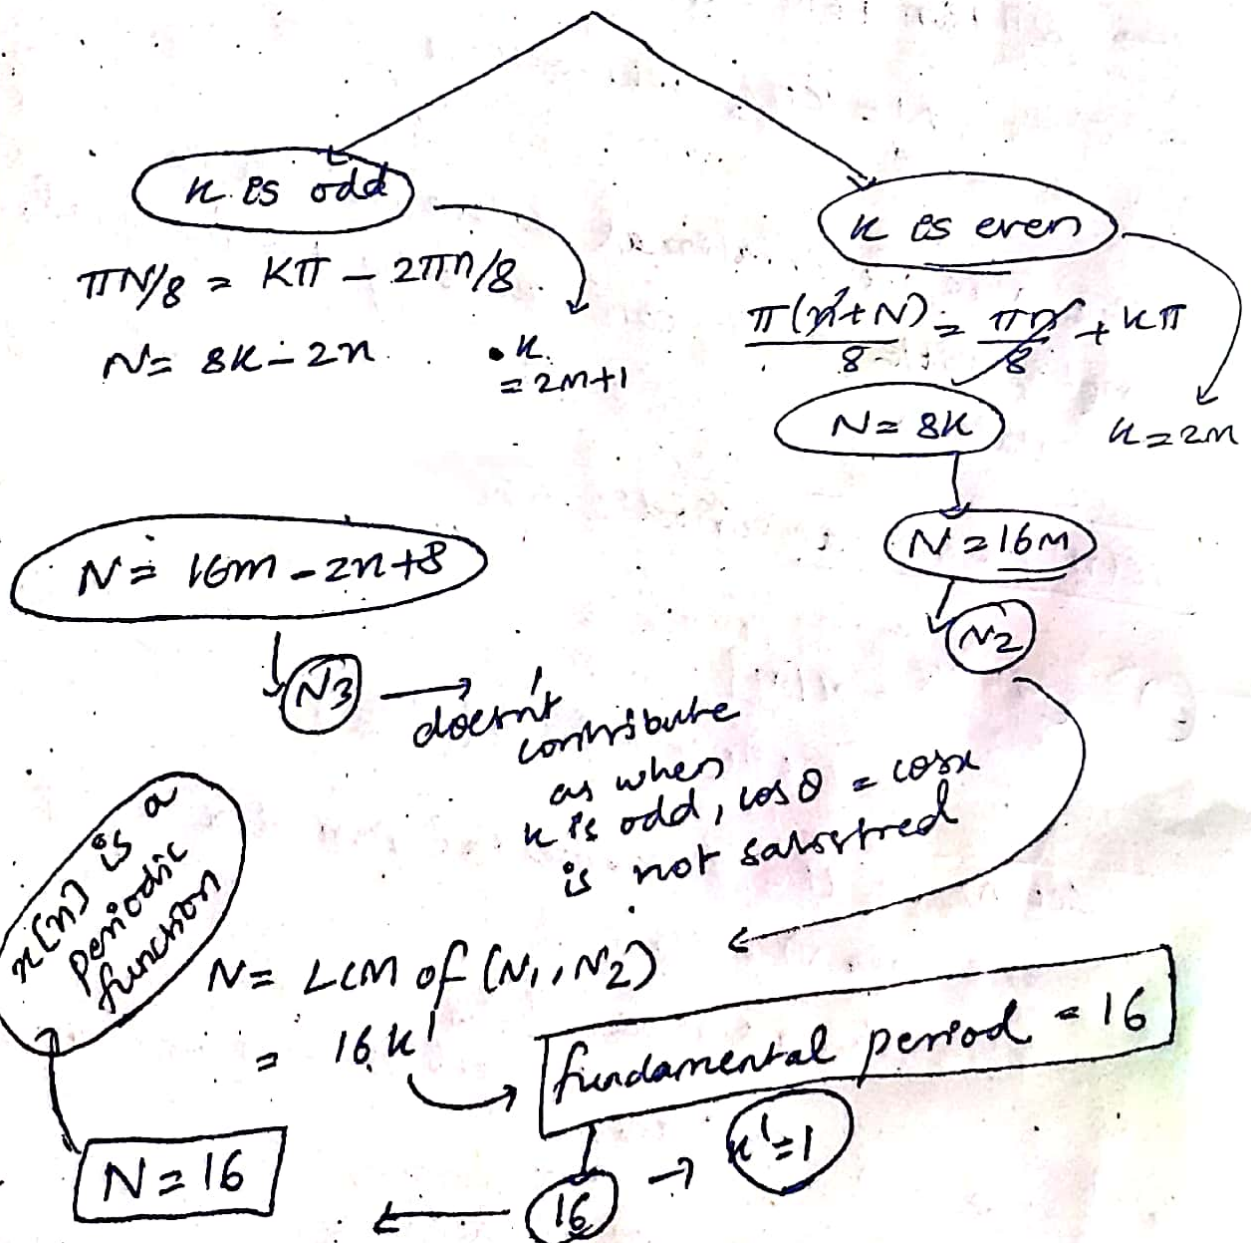 k is odd
πN/8 = kπ - 2πn/8
N = 8k - 2n
• k
= 2m+1
N = 16m - 2n + 8
N3 → doesn't
contribute
as when
k is odd, cosθ = cosx
is not satisfied
k is even
π(n+N)/8 = πn/8 + kπ
N = 8k
k = 2m
N = 16m
N2
x[n] is a
periodic
function
N = LCM of (N1, N2)
= 16k'
fundamental period = 16
k'=1
16
N = 16